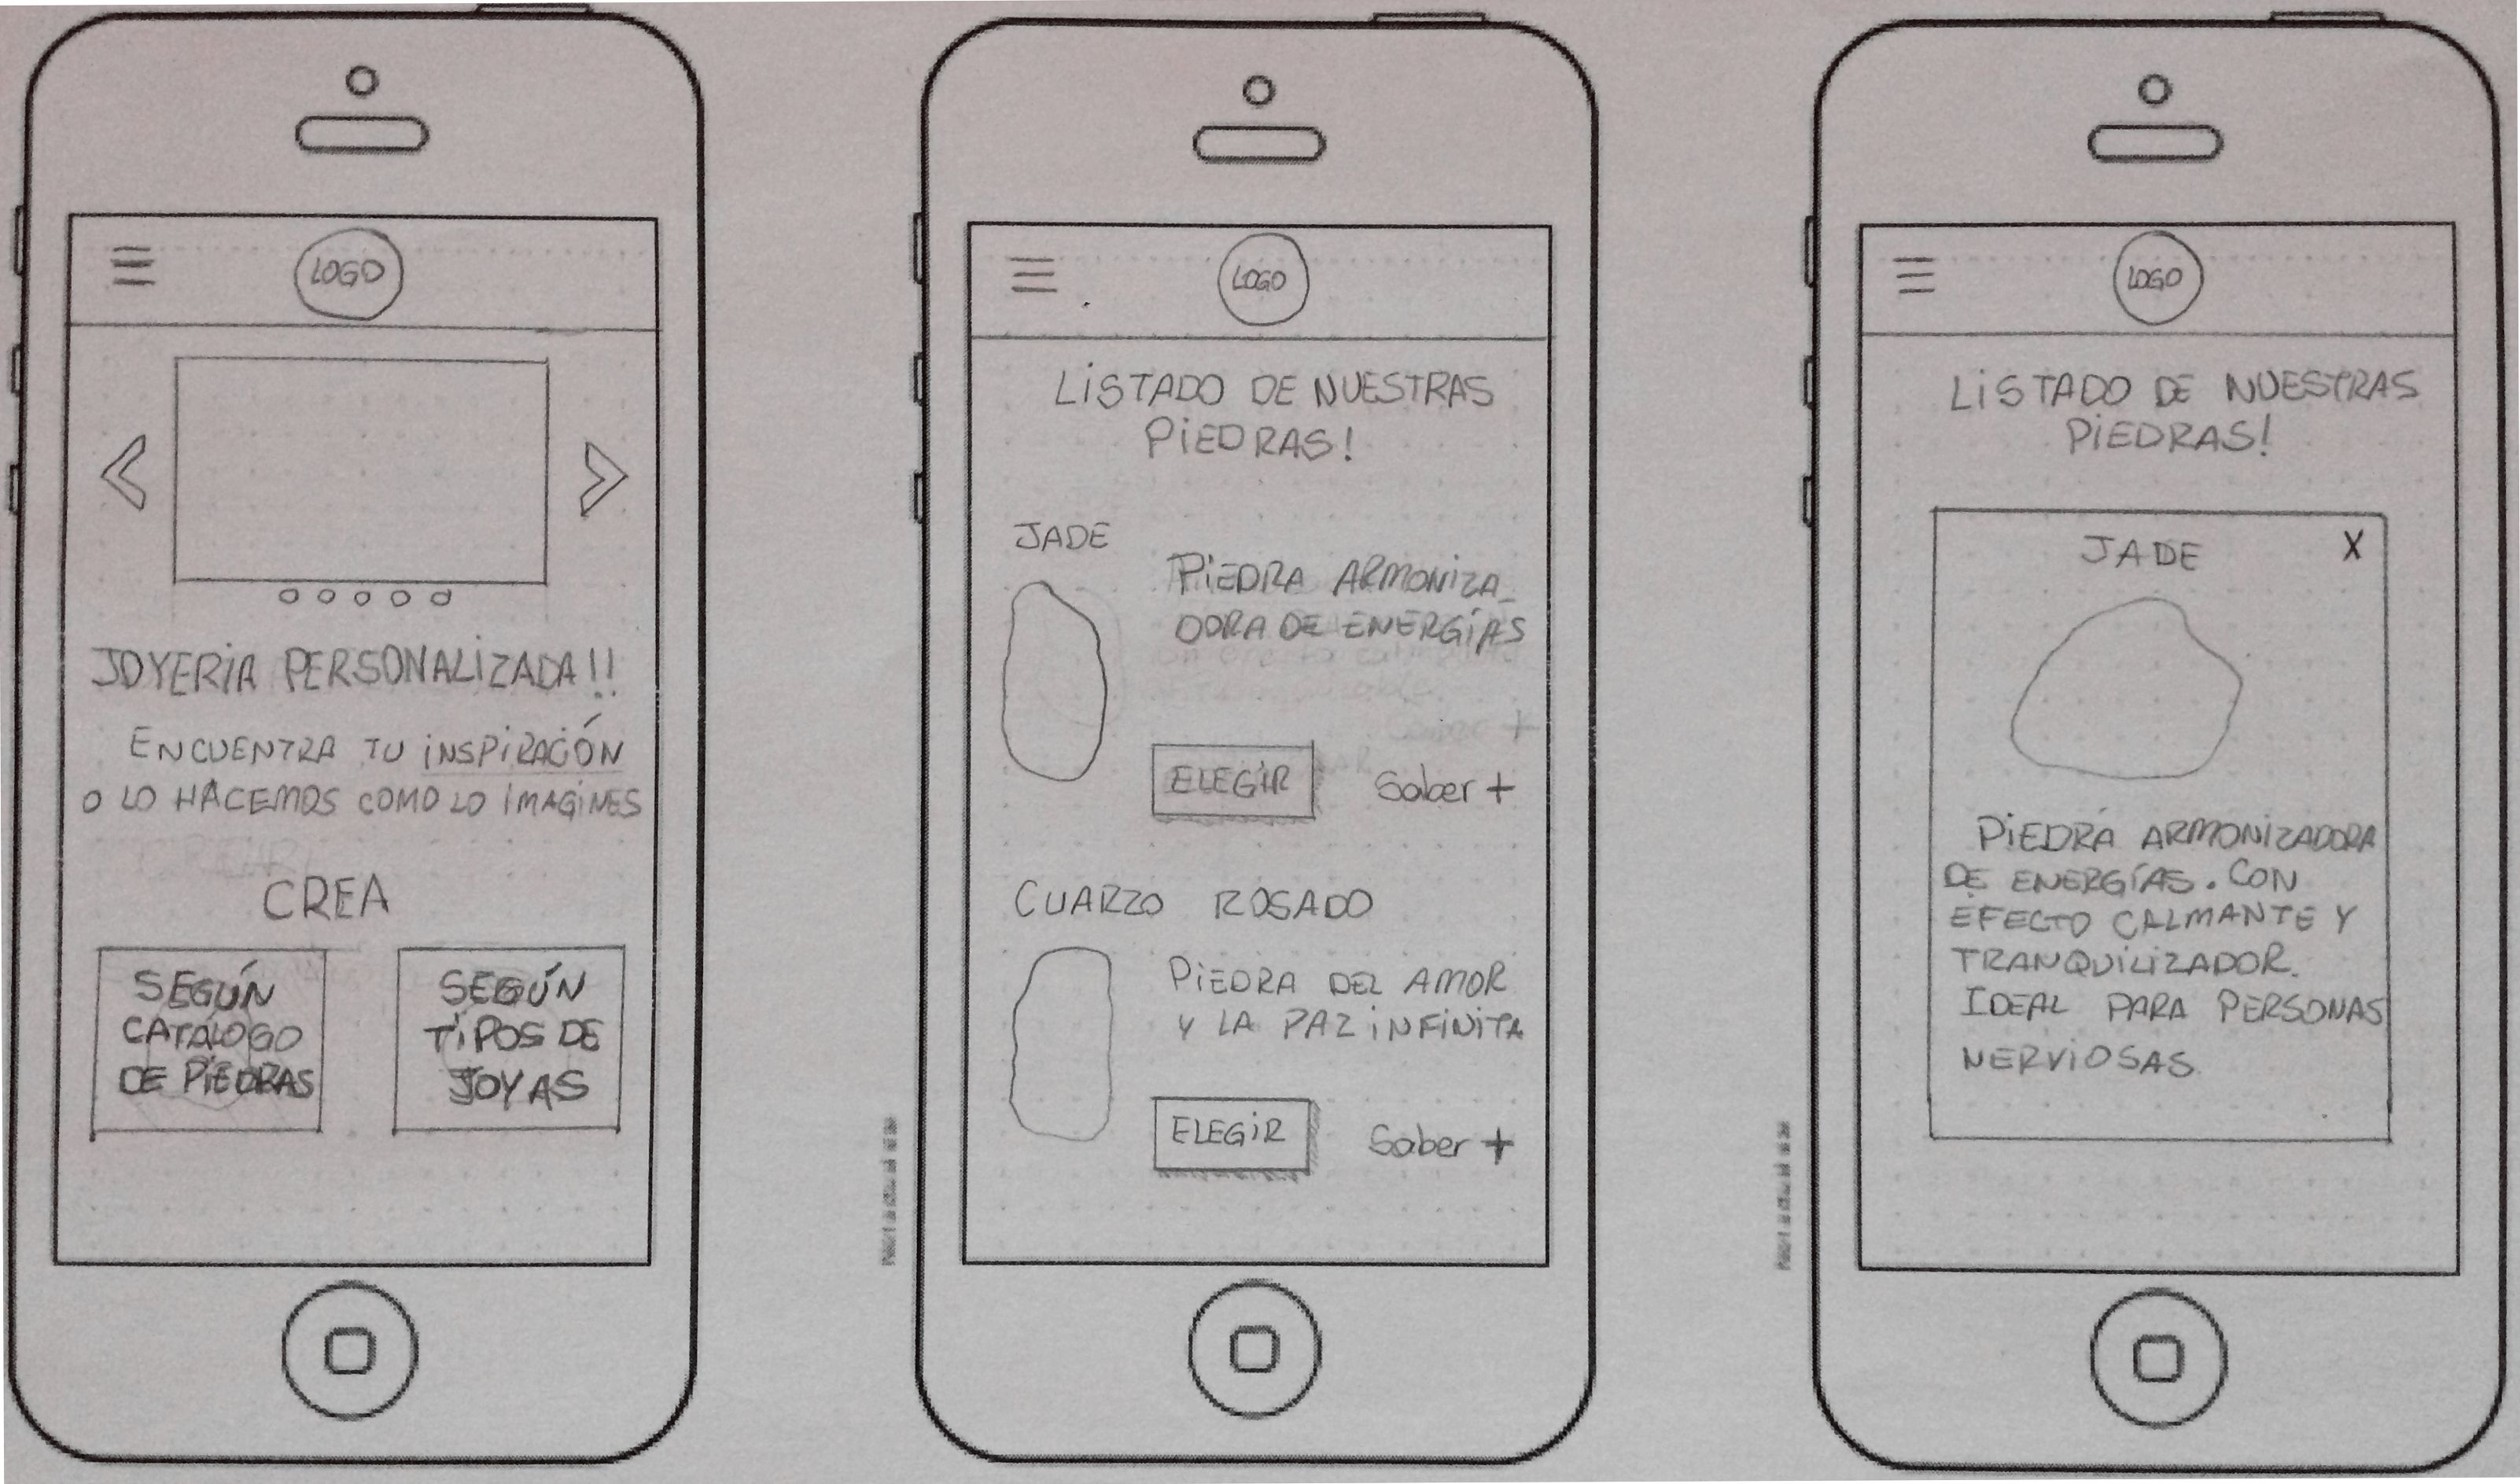 LOGO
JOYERIA PERSONALIZADA!!
ENCUENTRA TU INSPIRACIÓN
O LO HACEMOS COMO LO IMAGINES
CREA
SEGÚN
CATÁLOGO
DE PIEDRAS
SEGÚN
TIPOS DE
JOYAS
LOGO
LISTADO DE NUESTRAS
PIEDRAS!
JADE
PIEDRA ARMONIZA_
DORA DE ENERGÍAS
ELEGIR
Saber +
CUARZO ROSADO
PIEDRA DEL AMOR
Y LA PAZ INFINITA
ELEGIR
Saber +
LOGO
LISTADO DE NUESTRAS
PIEDRAS!
JADE X
PIEDRA ARMONIZADORA
DE ENERGÍAS. CON
EFECTO CALMANTE Y
TRANQUILIZADOR.
IDEAL PARA PERSONAS
NERVIOSAS